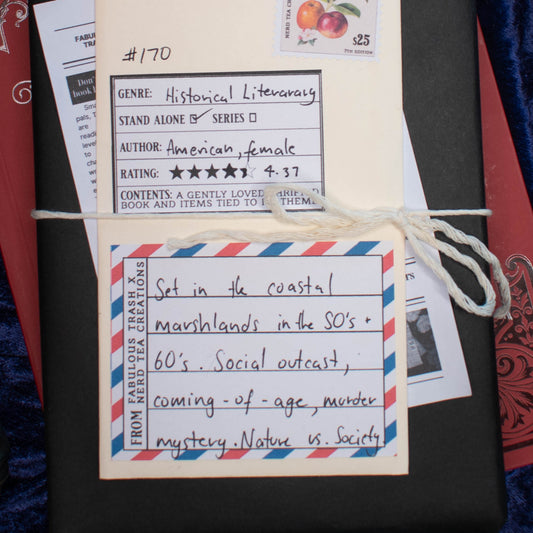 FABUL
TRA
Don't
book l
Sma
pals, T
are
readi
level
to
cha
NERD TEA CREATIONS
$25
7TH EDITION
#170
GENRE: Historical Literarary
STAND ALONE ☑ SERIES ☐
AUTHOR: American, female
RATING: ★★★★⯨ 4.37
CONTENTS: A GENTLY LOVED THRIFTED
BOOK AND ITEMS TIED TO THEME
FROM FABULOUS TRASH X
NERD TEA CREATIONS
Set in the coastal
marshlands in the 50's +
60's. Social outcast,
coming-of-age, murder
mystery. Nature vs. Society.
TS